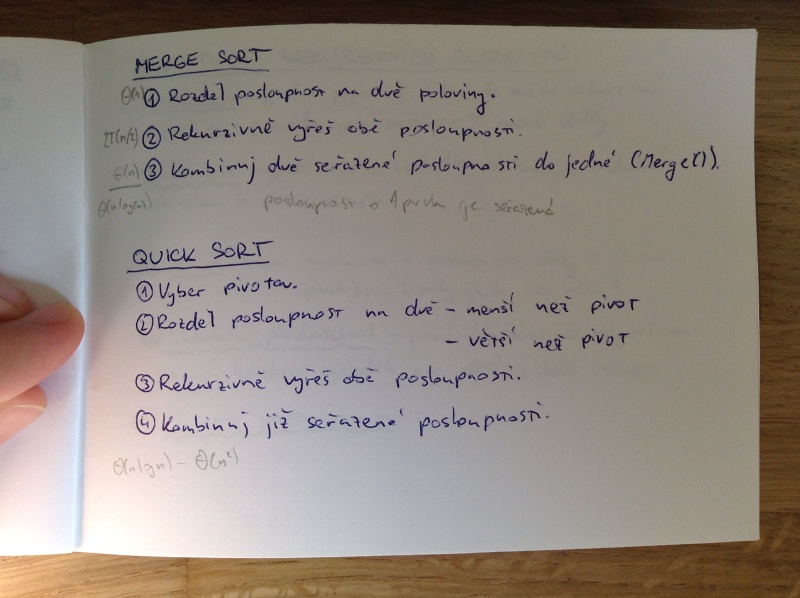 MERGE SORT
Θ(n) ① Rozděl posloupnost na dvě poloviny.
2T(n/2) ② Rekurzivně vyřeš obě posloupnosti.
Θ(n) ③ Kombinuj dvě seřazené posloupnosti do jedné (Merge()).
Θ(n log(n)) posloupnost o 1 prvku je seřazená
QUICK SORT
① Vyber pivota.
② Rozděl posloupnost na dvě – menší než pivot
– větší než pivot
③ Rekurzivně vyřeš obě posloupnosti.
④ Kombinuj již seřazené posloupnosti.
Θ(n lg n) – Θ(n²)